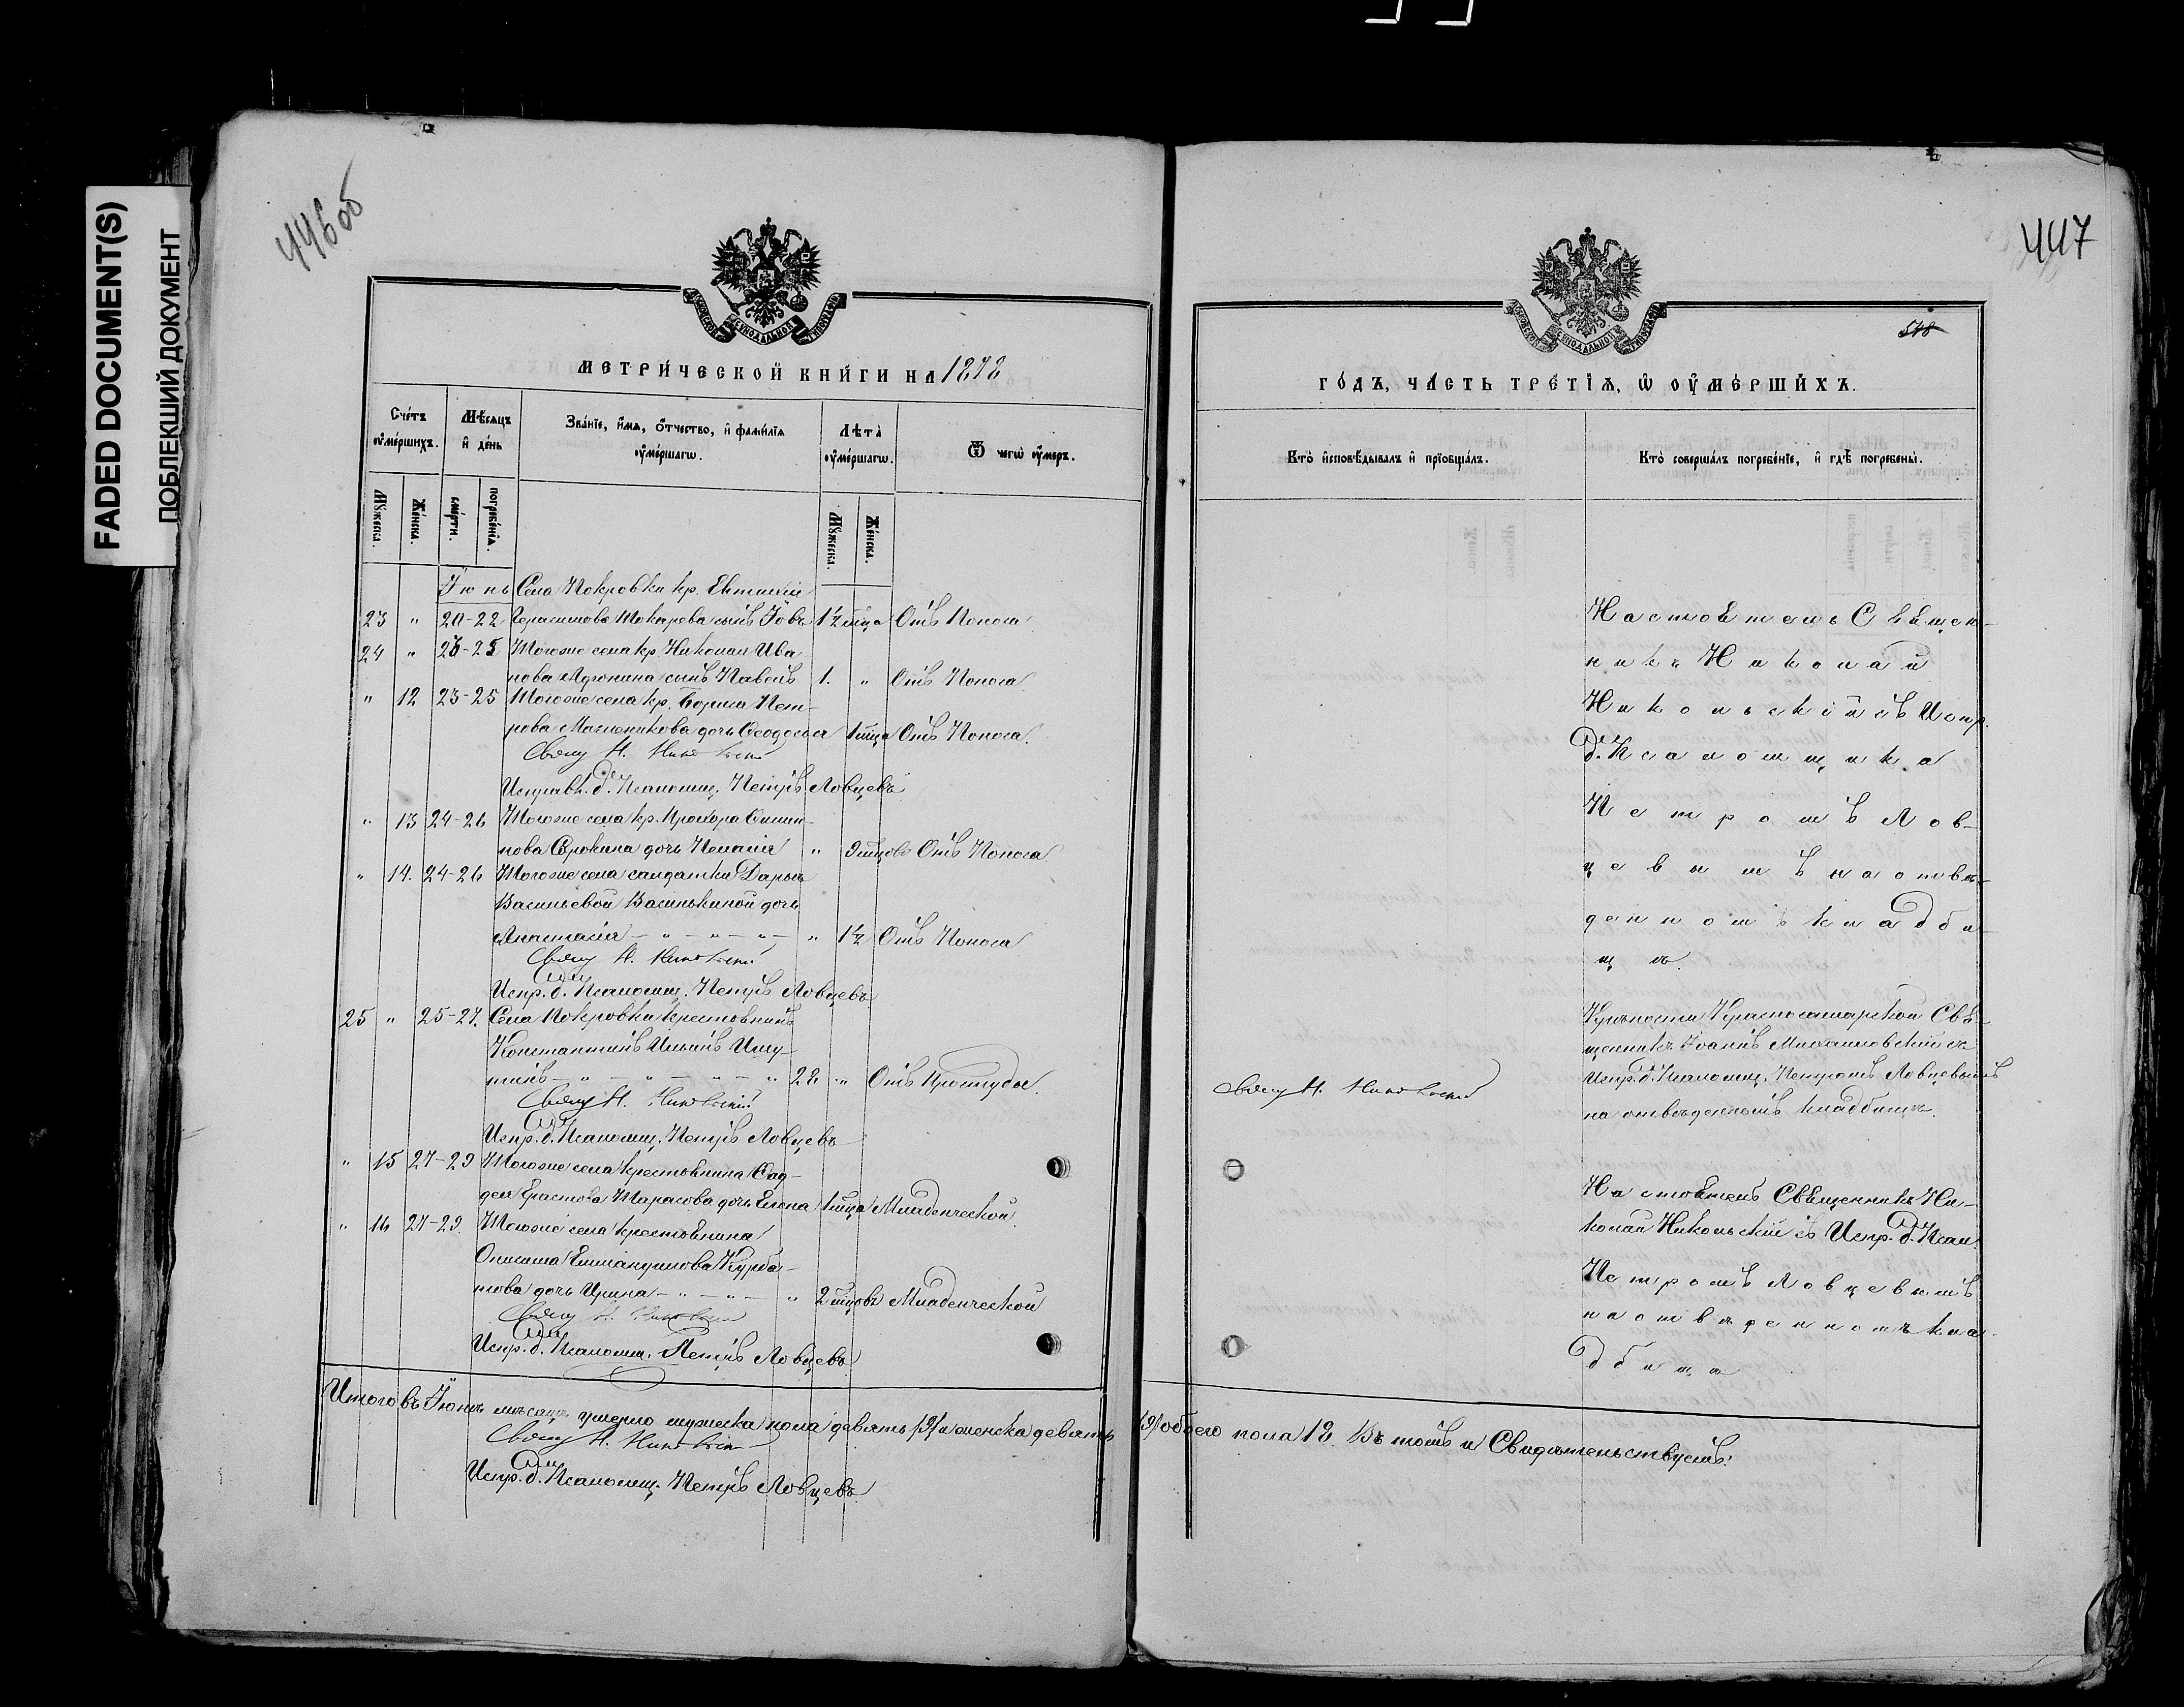 FADED DOCUMENT(S)
ПОБЛЕКШИЙ ДОКУМЕНТ
446об
МЕТРИ́ЧЕСКОЙ КНИ́ГИ НА 1878
Сче́тъ оу҆ме́ршихъ.
Мѣ́сяцъ и҆ де́нь
Зва́нїе, и҆́мя, ѻ҆́тчество, и҆ фами́лїя оу҆ме́ршагѡ.
Лѣ́та оу҆ме́ршагѡ.
Ѿ чегѡ̀ оу҆́меръ.
Мꙋ́жеска.
Же́нска.
сме́рти.
погребе́нїя.
Мꙋ́жеска.
Же́нска.
Іюнь Села Покровки кр. Евтихія
23 " 20-22 Герасимова Токарева сынъ Іовъ 1½ мца Отъ Поноса
24 " 23-25 Тогоже села кр. Николая Ива-
нова сынъ Павелъ 1. " Отъ Поноса
" 12 23-25 Тогоже села кр. Бориса Пет-
рова Масленикова дочь Ѳеодосья 1 мца Отъ Поноса.
Свящ Н. Никольскій
Исправл. д. Псаломщ. Петръ Ловцевъ
" 13 24-26 Тогоже села кр. Прохора
Сорокина дочь Пелагія " 9 мцовъ Отъ Поноса
" 14. 24-26 Тогоже села салдатки Дарьи
Васильевой Василькиной дочь
Анастасія — " — " — " — " 1½ Отъ Поноса
Свящ Н. Никольскій
Испр. д. Псаломщ. Петръ Ловцевъ
25 " 25-27. Села Покровки крестьянинъ
Константинъ Ильинъ
— " — " — " — " 28 " Отъ Простуды.
Свящ Н. Никольскій
Испр. д. Псаломщ. Петръ Ловцевъ
" 15 27-29 Тогоже села крестьянина Ѳад-
дея Ерастова Тарасова дочь Елена 1 мца Младенческой.
" 16 27-29. Тогоже села крестьянина
Онисима Курба-
това дочь Ирина — " — " — " 2 мцовъ Младенческой
Свящ Н. Никольскій
Испр. д. Псаломщ. Петръ Ловцевъ
Итого въ Іюнѣ мѣсяцѣ умерло мужеска пола девять /9/ и женска девять /9/ обоего пола 18. Въ томъ и Свидѣтельствуемъ:
Свящ Н. Никольскій
Испр. д. Псаломщ. Петръ Ловцевъ
447
518
ГО́ДЪ, ЧА́СТЬ ТРЕ́ТЇѦ, Ѡ҆ ОУ҆МЕ́РШИХЪ.
Кто̀ и҆сповѣ́дывалъ и҆ прїѻбща́лъ.
Кто̀ соверша́лъ погребе́нїе, и҆ гдѣ̀ погребены̀.
Настоятель Священ-
никъ Николай
Никольскій съ Испр.
д. Псаломщика
Петромъ Лов-
цевымъ на отве-
денномъ кладби-
щѣ.
Свящ Н. Никольскій
Крѣпости Красносамарской Свя-
щенникъ Іоаннъ Михаиловскій съ
Испр. д. Псаломщ. Петромъ Ловцевымъ
на отведенномъ кладбищѣ.
Настоятель Священникъ Ни-
колай Никольскій съ Испр. д. Псал.
Петромъ Ловцевымъ
на отведенномъ кла-
дбища